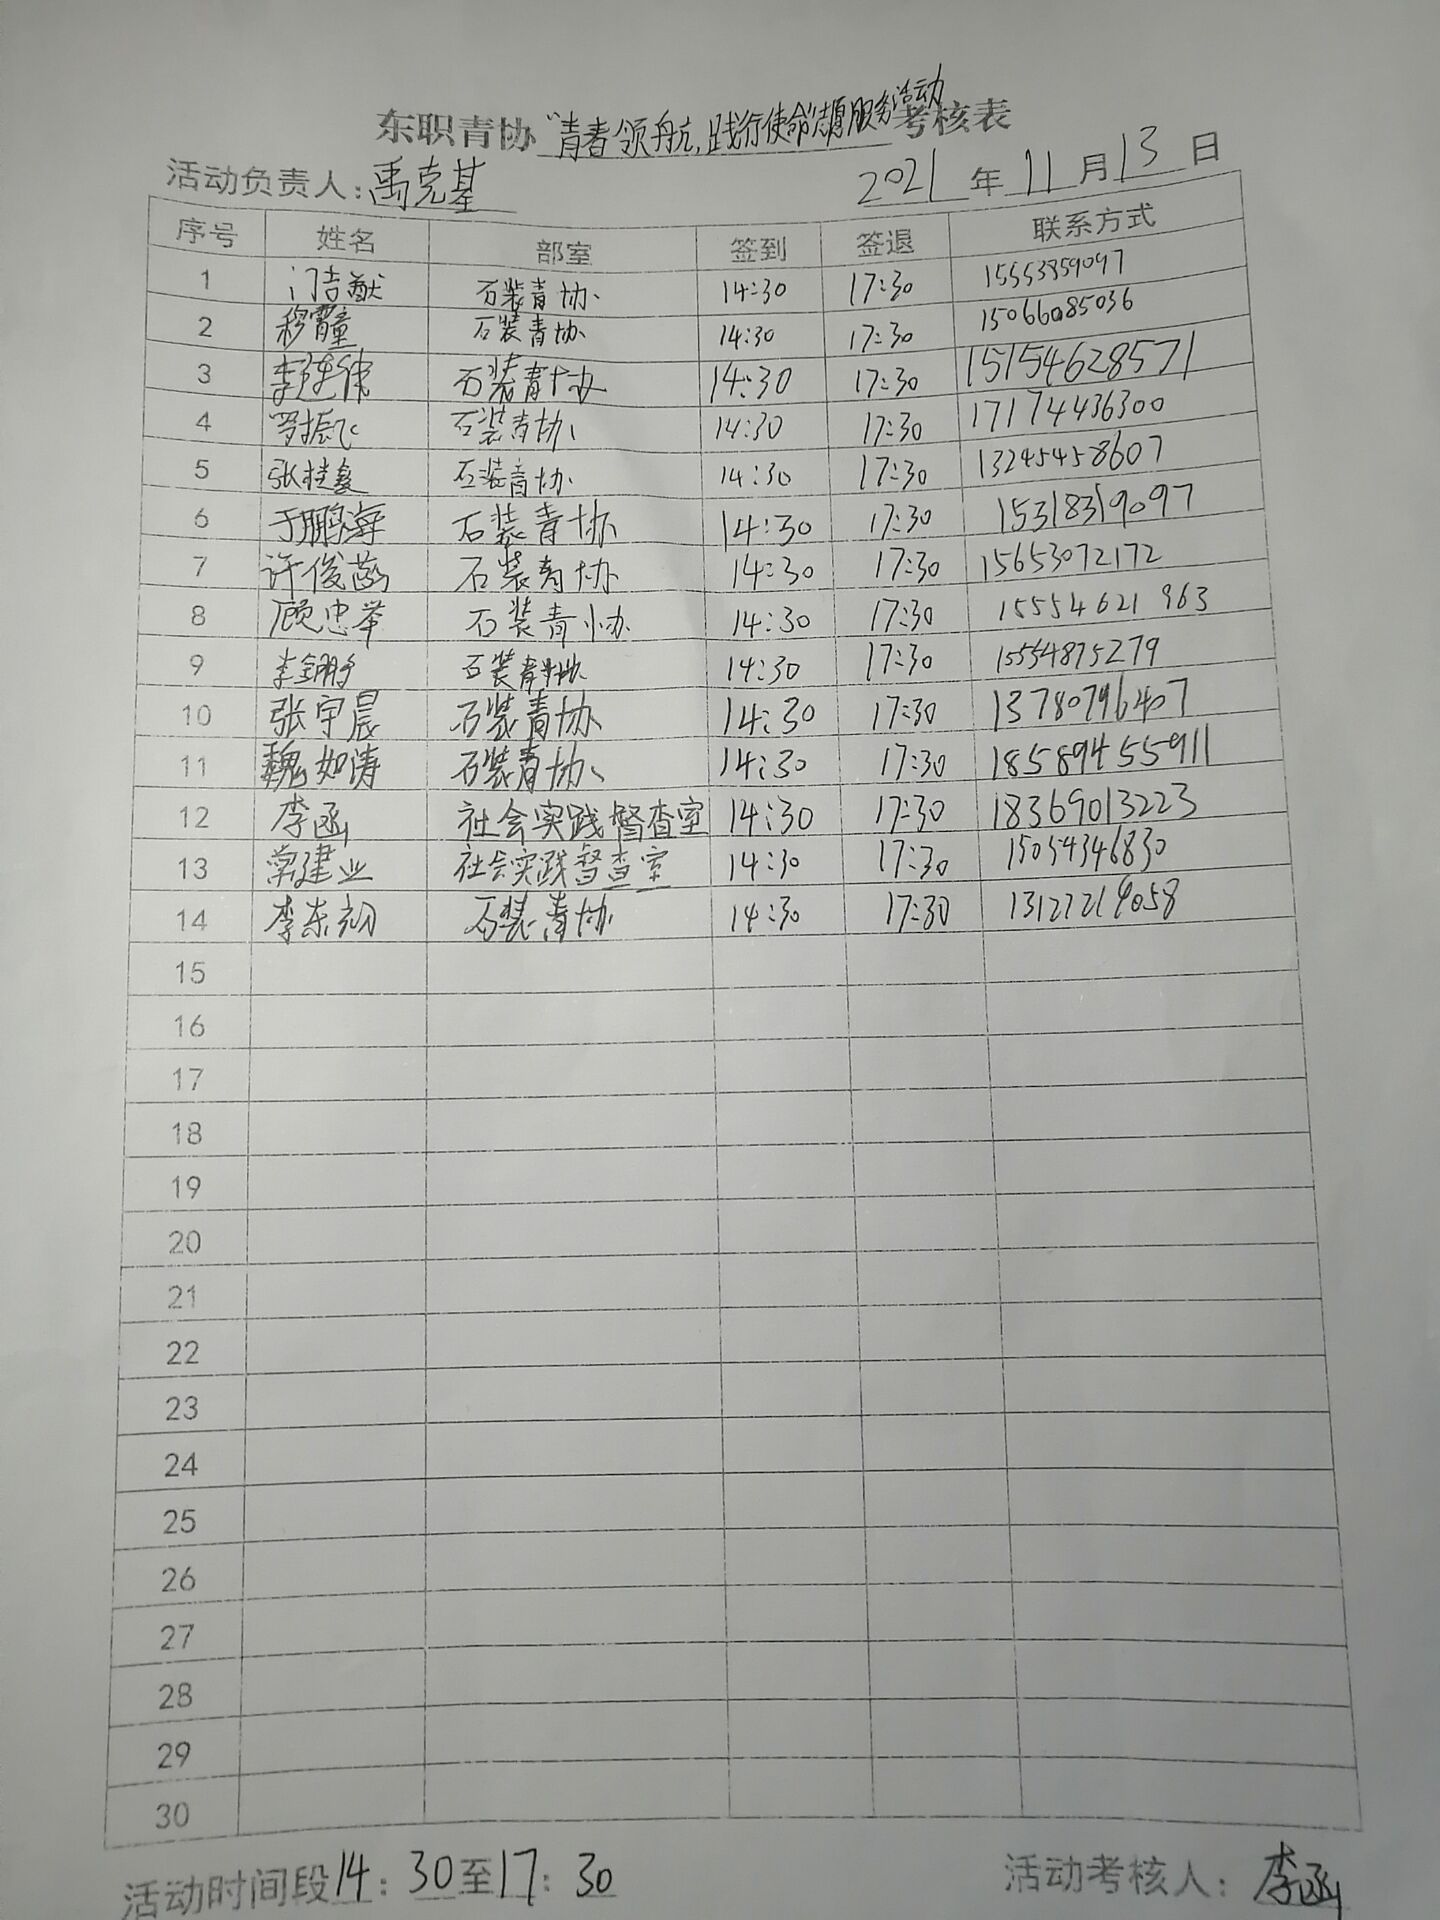 东职青协“青春领航,践行使命”志愿服务活动考核表
活动负责人:禹克基 2021年11月13日
序号 姓名 部室 签到 签退 联系方式
1 门吉猷 石装青协 14:30 17:30 15553859097
2 穆霄童 石装青协 14:30 17:30 15066085036
3 李 石装青协 14:30 17:30 15154628571
4 罗振飞 石装青协 14:30 17:30 17174436300
5 张桂鑫 石装青协 14:30 17:30 13245458607
6 于鹏海 石装青协 14:30 17:30 15318319097
7 许俊菡 石装青协 14:30 17:30 15653072172
8 顾忠举 石装青协 14:30 17:30 15554621963
9 李 石装青协 14:30 17:30 15554875279
10 张宇晨 石装青协 14:30 17:30 13780796407
11 魏如涛 石装青协 14:30 17:30 18589455911
12 李函 社会实践督查室 14:30 17:30 18369013223
13 常建业 社会实践督查室 14:30 17:30 15054346830
14 李东润 石装青协 14:30 17:30 13127219058
15
16
17
18
19
20
21
22
23
24
25
26
27
28
29
30
活动时间段14:30至17:30 活动考核人:李函